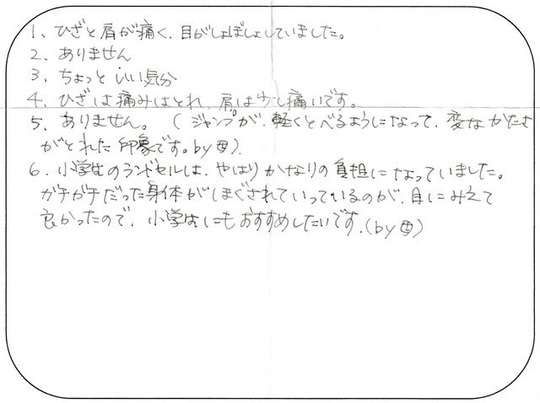 1、ひざと肩が痛く、目がしょぼしょぼしていました。
2、ありません
3、ちょっといい気分
4、ひざは痛みはとれ、肩は少し痛いです。
5、ありません。（ジャンプが、軽くとべるようになって、変なかたさ
がとれた印象です。by母）
6、小学生のランドセルは、やはりかなりの負担になっていました。
ガチガチだった身体がほぐされていっているのが、目にみえて
良かったので、小学生にもおすすめしたいです。（by母）